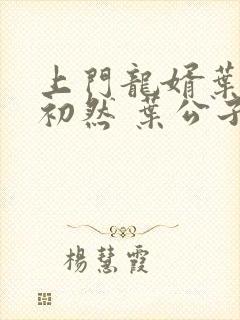 上門龍婿葉
初然 葉公子
楊慧霞